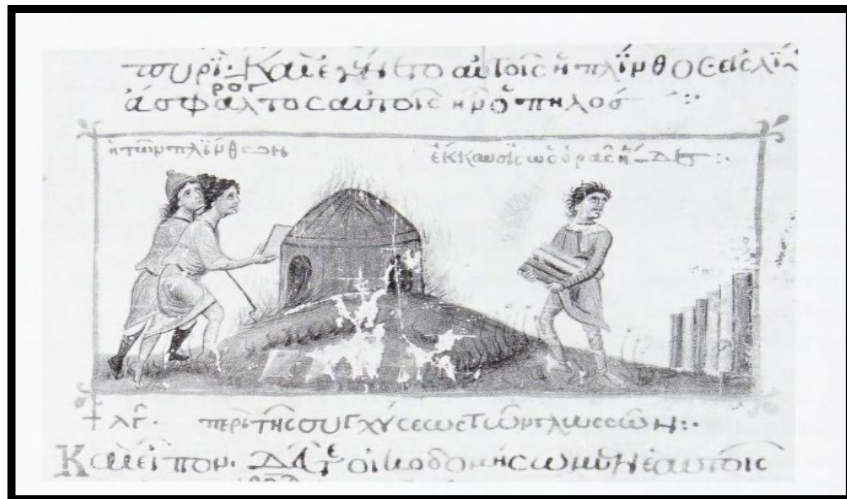 πυρί· Καὶ ἐγένετο αὐτοῖς ἡ πλίνθος εἰς λί
ἄσφαλτος αὐτοῖς ἦν ὁ πηλός :·
ἡ τῶν πλίνθων ἔκκαυσις ὡς ὁρᾷς
+ λγ· περὶ τῆς συγχύσεως τῶν γλωσσῶν :·
Καὶ εἶπον· Δεῦτε οἰκοδομήσωμεν ἑαυτοῖς